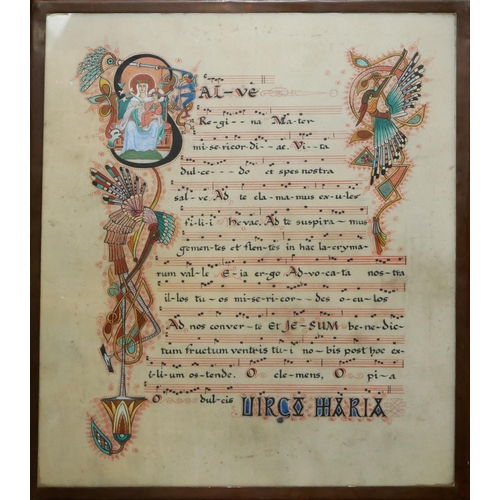 SAL-VE
Re-gi--na Ma-ter
mi-se-ricor-di-ae. Vi-ta
dul-ce--do et spes nostra
sal-ve. Ad te cla-ma-mus ex-u-les
fi-li-i Hevae. Ad te suspira-mus
gemen-tes et flen-tes in hac la-cryma-
rum val-le E-ja er-go Ad-vo-ca-ta nos-tra
il-los tu-os mi-se-ri-cor--des o-cu-los
Ad nos conver-te Et JE-SUM be-ne-dic-
tum fructum ventris tu-i no-bis post hoc ex-
i-li-um os-tende. O cle-mens, O pi-a
O dul-cis VIRGO MARIA